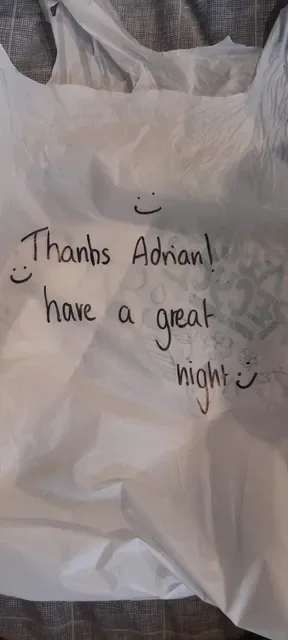 Thanks Adrian!
have a great
night :)